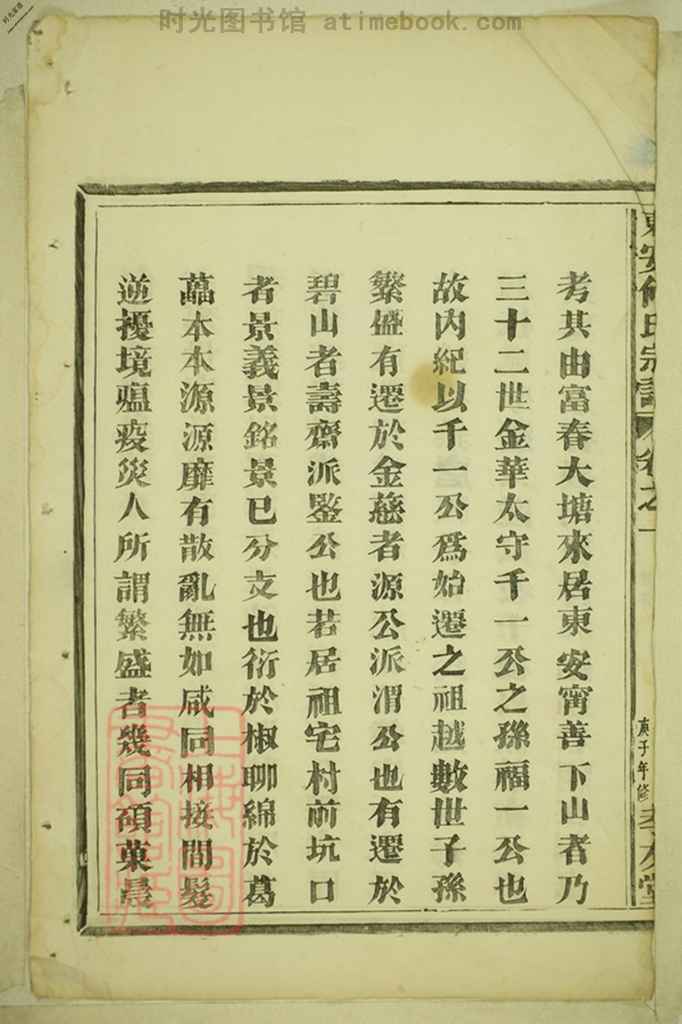 时光图书馆 atimebook.com
東安何氏宗譜 卷之一
庚子年修 孝友堂
考其由富春大塘來居東安甯善下山者乃
三十二世金華太守千一公之孫福一公也
故內紀以千一公爲始遷之祖越數世子孫
繁盛有遷於金慈者源公派渭公也有遷於
碧山者壽齋派鑒公也若居祖宅村前坑口
者景義景銘景巳分支也衍於椒聊綿於葛
藟本本源源靡有散亂無如咸同相接間髮
逆擾境瘟疫災人所謂繁盛者幾同碩菓晨